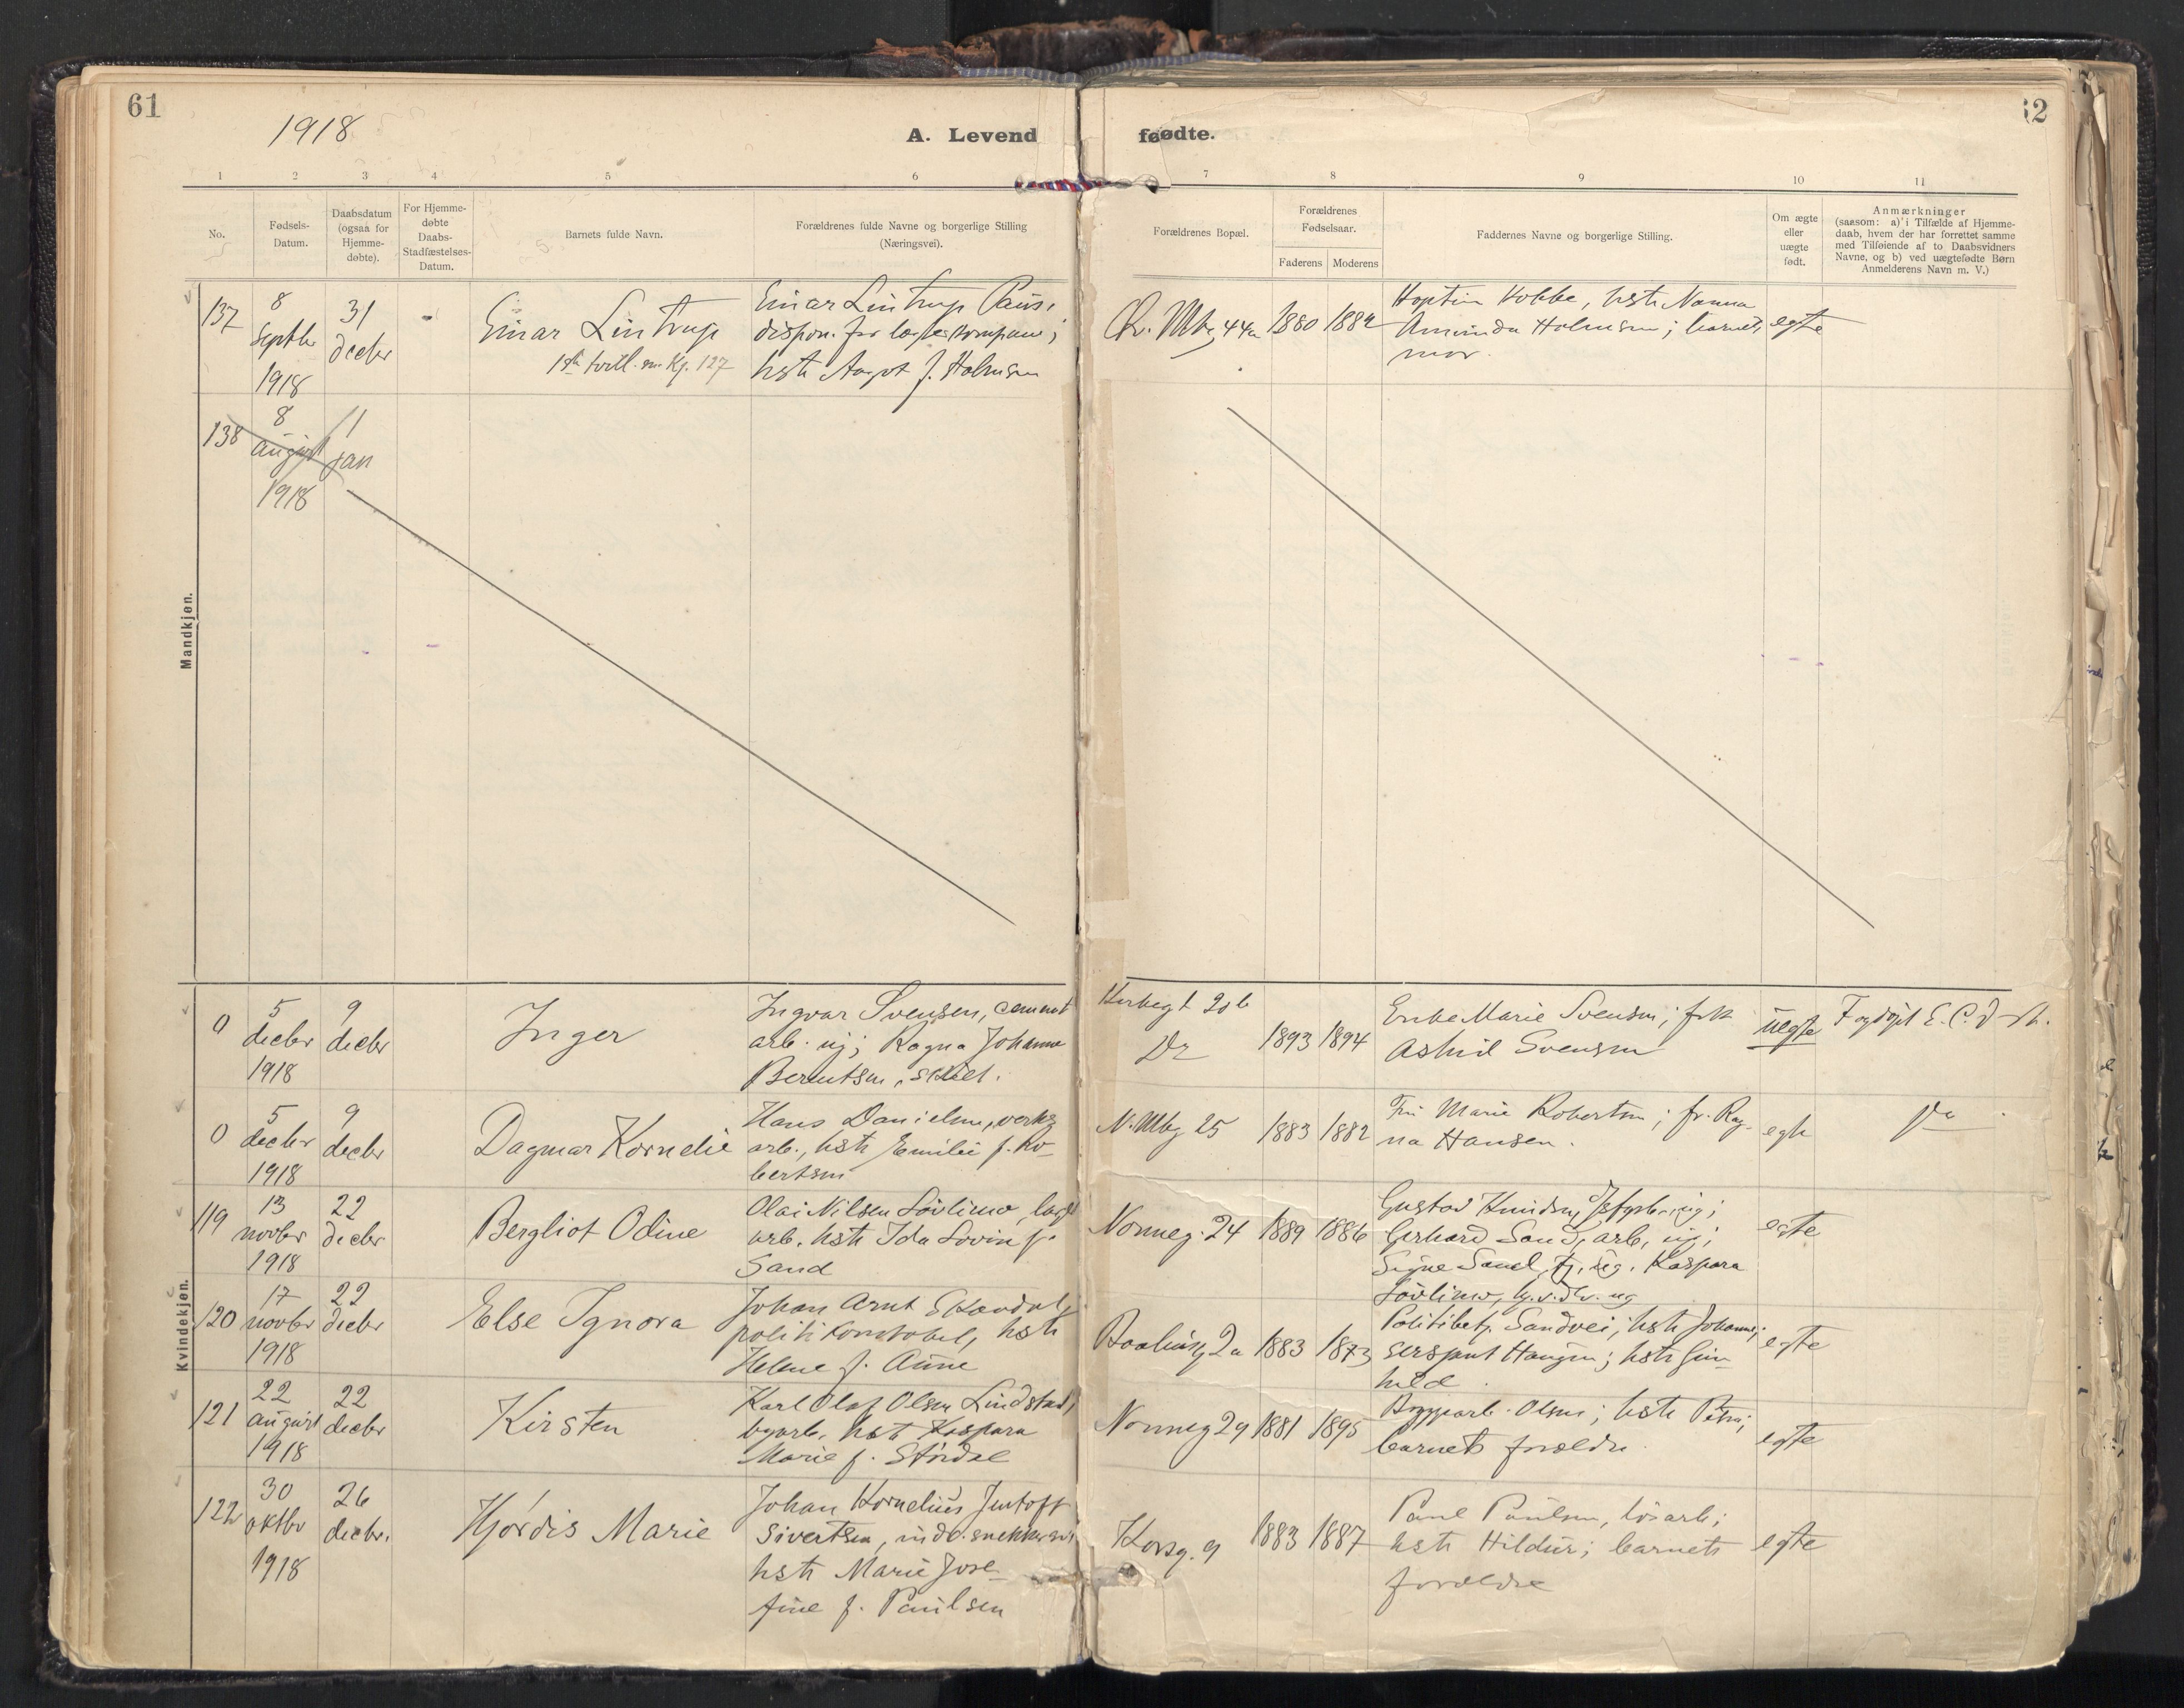 61
1918
A. Levend
føødte.
62
1 2 3 4 5 6 7 8 9 10 11
No.
Fødsels-
Datum.
Daabsdatum
(ogsaa for
Hjemme-
døbte).
For Hjemme-
døbte
Daabs-
Stadfæstelses-
Datum.
Barnets fulde Navn.
Forældrenes fulde Navne og borgerlige Stilling
(Næringsvei).
Forældrenes Bopæl.
Forældrenes
Fødselsaar.
Faderens
Moderens
Faddernes Navne og borgerlige Stilling.
Om ægte
eller
uægte
født.
Anmærkninger
(saasom: a) i Tilfælde af Hjemme-
daab, hvem der har forrettet samme
med Tilføiende af to Daabsvidners
Navne, og b) ved uægtefødte Børn
Anmelderens Navn m. V.)
Mandkjøn.
137
8
septbr
1918
31
decbr
-
Einar Lintrup
1ste tvill. m. Kj. 127
Einar Lintrup Paus,
dispon. for kompani;
hstr Aagot f. Holmsen
44a
1880
1882
Kobbe, hstr Nanna
Holmsen; barnets
mor.
egte
138
8
august
1918
1
jan
Kvindekjøn.
0
5
decbr
1918
9
decbr
Inger
Ingvar Svensen, cement
arb. ug; Ragna Johanne
Berntsen, skilt.
20b
1893
1894
Enke Marie Svensen; frk
Astrid Svensen
uegte
0
5
decbr
1918
9
decbr
Dagmar Kornelie
Hans Danielsen, verks
arb., hstr Emilie f. Ro-
bertsen
N. Mbg 25
1883
1882
Fru Marie Robertsen; fr. Rag-
na Hansen.
egte
119
13
novbr
1918
22
decbr
Bergliot Odine
Olai Nilsen Lövlimo,
arb. hstr Ida Lovin f.
Sand
Nonneg. 24
1889
1886
Gustav Knudsen, ug;
Gerhard Sand, arb, ug;
Signe Sand, tj. ug. Kaspara
Lövlimo, ug
egte
120
17
novbr
1918
22
decbr
Else Ignora
Johan Arnt
politikonstabel, hstr
Helene f. Aune
2a
1883
1873
Politibetj. Sandvei, hstr Johanne;
sersjant Haugen; hstr Gun-
hild.
egte
121
22
august
1918
22
decbr
Kirsten
Karl Olaf Olsen Lindstad,
bgarb. hst Kaspara
Marie f. Stördal
Nonneg 29
1881
1895
Olsen; hstr Petra;
barnets forældre.
egte
122
30
oktbr
1918
26
decbr.
Hjördis Marie
Johan Kornelius Jentoft
Sivertsen,
hstr Marie Jose-
fine f. Paulsen
Korsg. 9
1883
1887
Paul Paulsen, lösarb;
hstr Hildur; barnets
forældre
egte